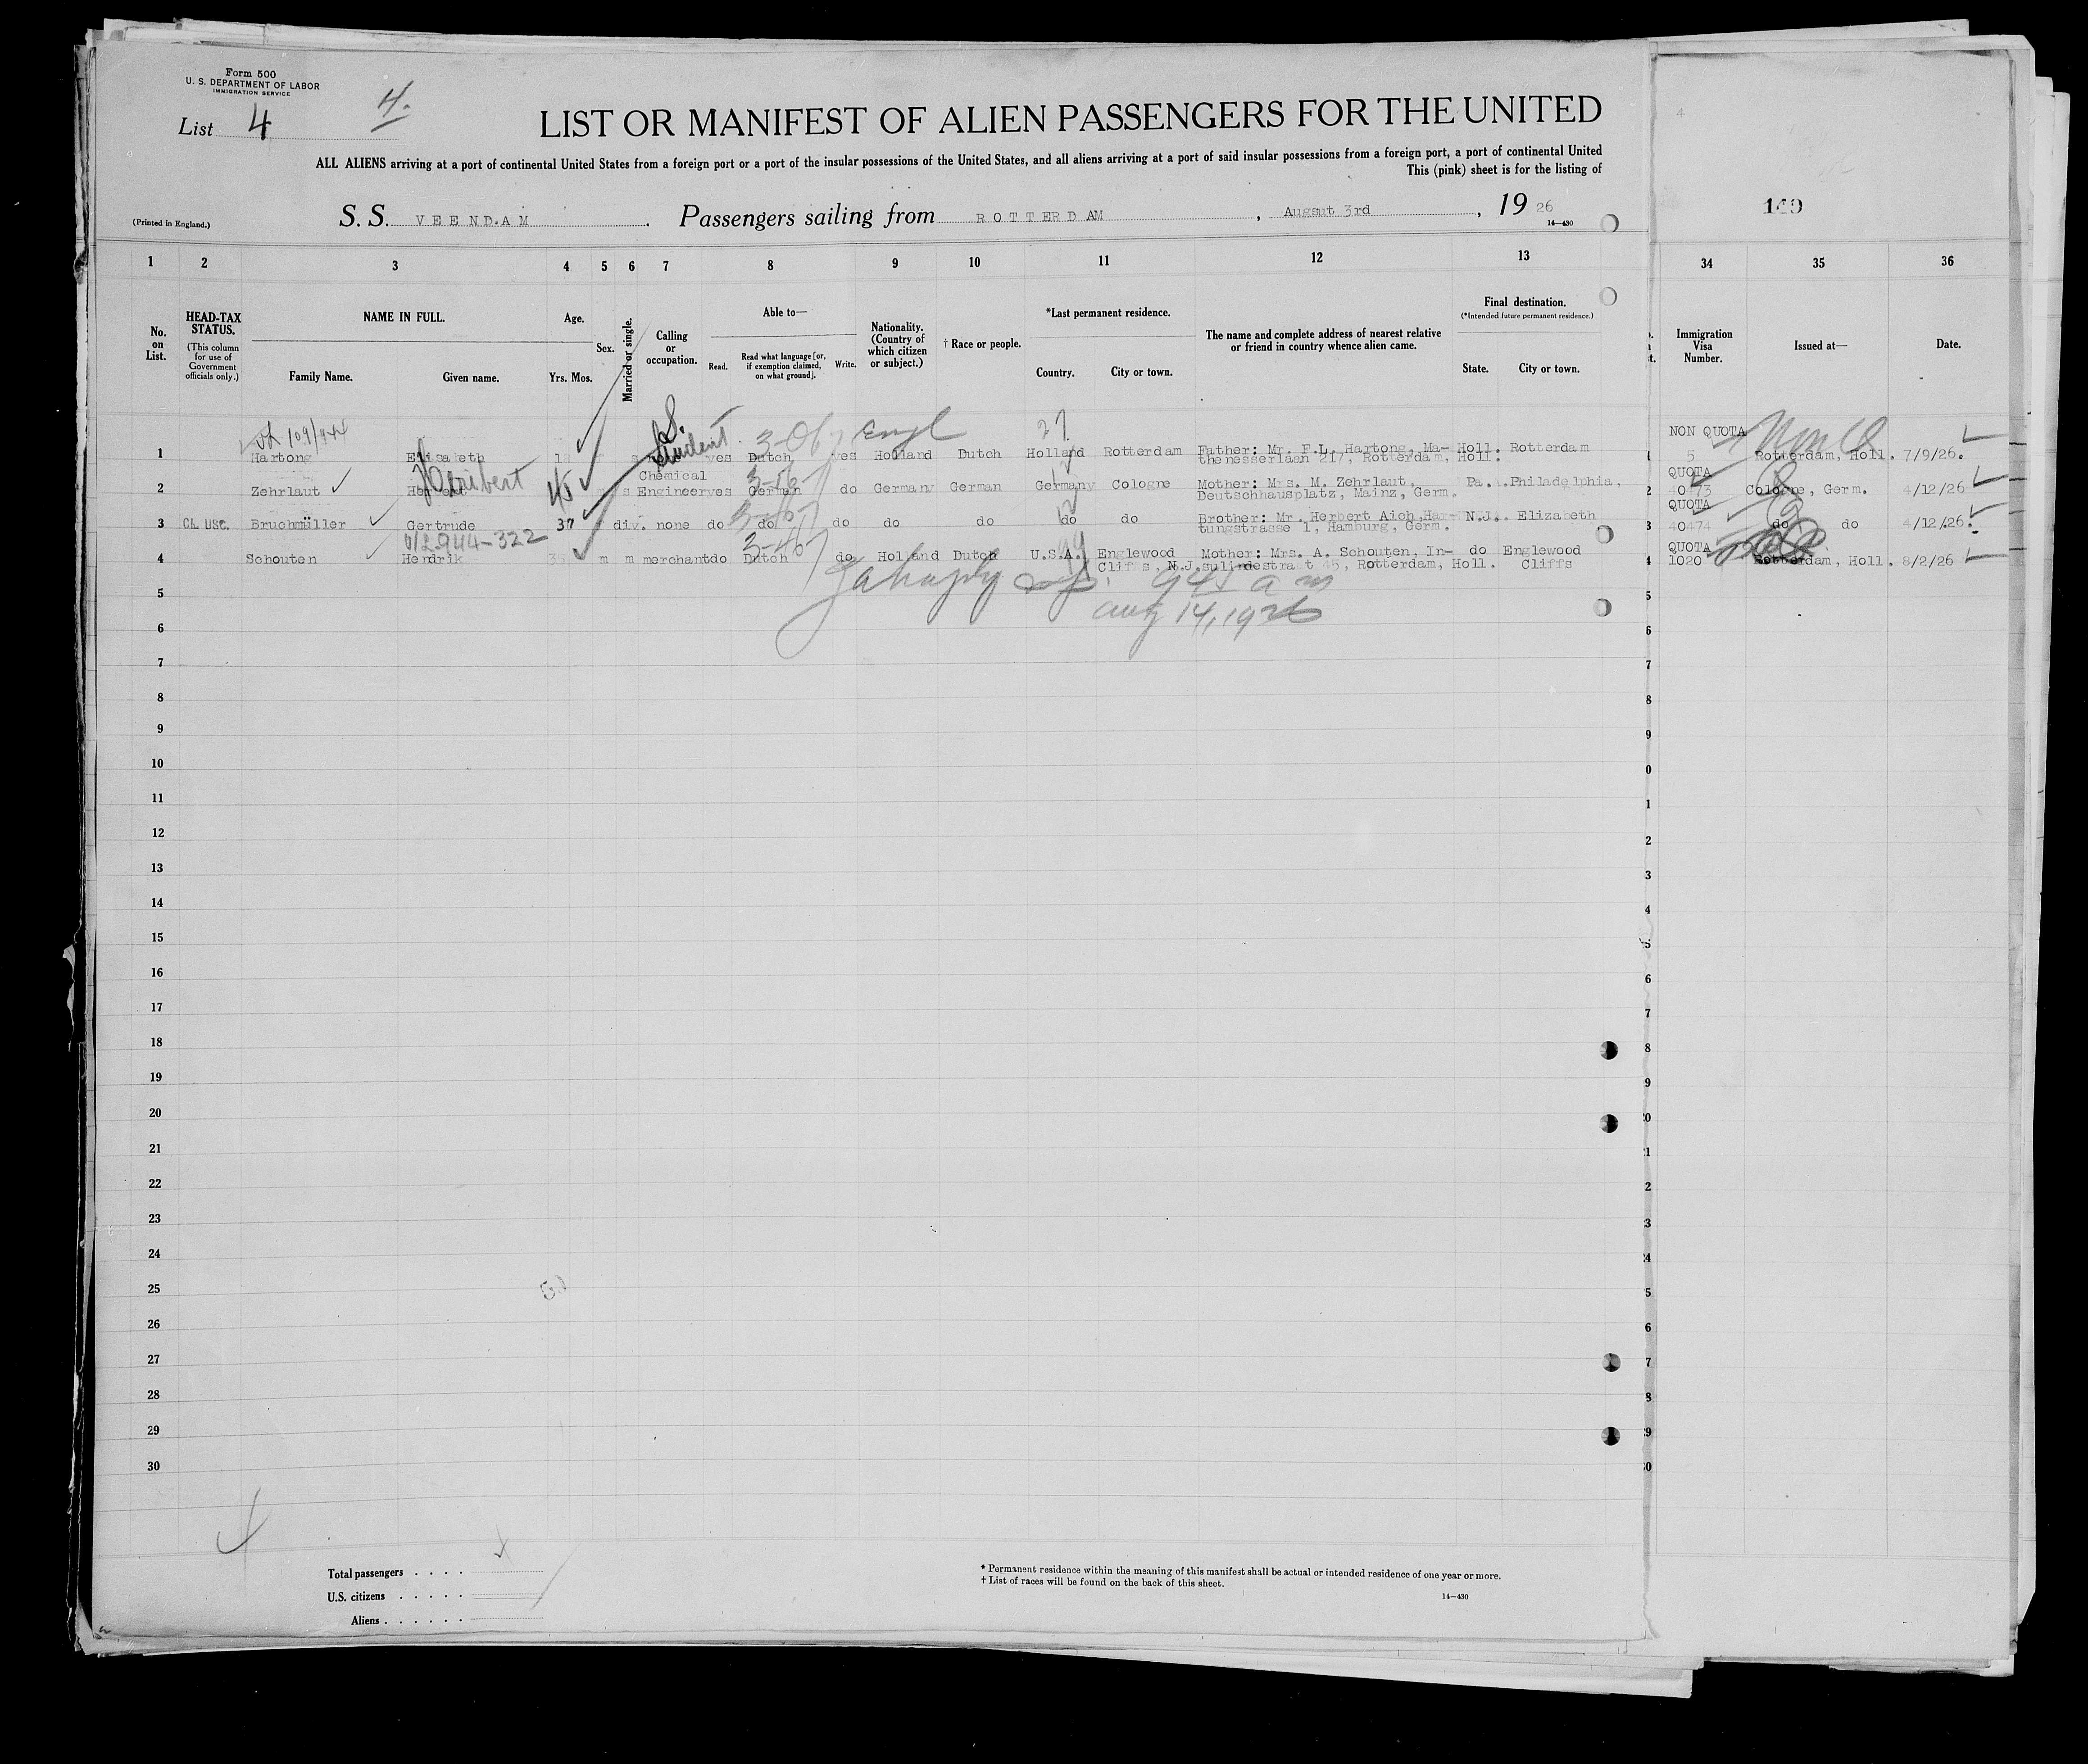 Form 500
U. S. DEPARTMENT OF LABOR
IMMIGRATION SERVICE
List 4
4.
LIST OR MANIFEST OF ALIEN PASSENGERS FOR THE UNITED
ALL ALIENS arriving at a port of continental United States from a foreign port or a port of the insular possessions of the United States, and all aliens arriving at a port of said insular possessions from a foreign port, a port of continental United
This (pink) sheet is for the listing of
(Printed in England.)
S. S. VEENDAM. Passengers sailing from ROTTERDAM, Augsut 3rd, 19 26
14—430
1 2 3 4 5 6 7 8 9 10 11 12 13 34 35 36
No. on List.
HEAD-TAX STATUS.
(This column for use of Government officials only.)
NAME IN FULL.
Family Name. Given name.
Age.
Yrs. Mos.
Sex.
Married or single.
Calling or occupation.
Able to—
Read. Read what language [or, if exemption claimed, on what ground]. Write.
Nationality. (Country of which citizen or subject.)
† Race or people.
*Last permanent residence.
Country. City or town.
The name and complete address of nearest relative or friend in country whence alien came.
Final destination.
(*Intended future permanent residence.)
State. City or town.
Immigration Visa Number.
Issued at—
Date.
109/944
NON QUOTA
1 Hartong Elisabeth student yes Dutch Engl yes Holland Dutch Holland Rotterdam Father: Mr. F.L. Hartong, Ma- Holl. Rotterdam 5 Rotterdam, Holl. 7/9/26.
thenesserlaan 217, Rotterdam, Holl.
Chemical
QUOTA
2 Zehrlaut 45 s Engineer yes German do Germany German Germany Cologne Mother: Mrs. M. Zehrlaut, Pa. Philadelphia, 40473 Cologne, Germ. 4/12/26
Deutschhausplatz, Mainz, Germ.
QUOTA
3 CL. USC. Bruchmüller Gertrude 37 f div. none do do do do do do do Brother: Mr. Herbert Aich, Har- N.J. Elizabeth 40474 do do 4/12/26.
tungstrasse 1, Hamburg, Germ.
944-322
QUOTA
4 Schouten Hendrik m m merchant do Dutch do Holland Dutch U.S.A. Englewood Mother: Mrs. A. Schouten, In- do Englewood 1020 Rotterdam, Holl. 8/2/26
Cliffs, N.J. sulindestraat 45, Rotterdam, Holl. Cliffs
945 am
Aug 14, 1926
5
6
7
8
9
10
11
12
13
14
15
16
17
18
19
20
21
22
23
24
25
26
27
28
29
30
Total passengers . . . .
U.S. citizens . . . . .
Aliens . . . . . .
* Permanent residence within the meaning of this manifest shall be actual or intended residence of one year or more.
† List of races will be found on the back of this sheet.
14—430